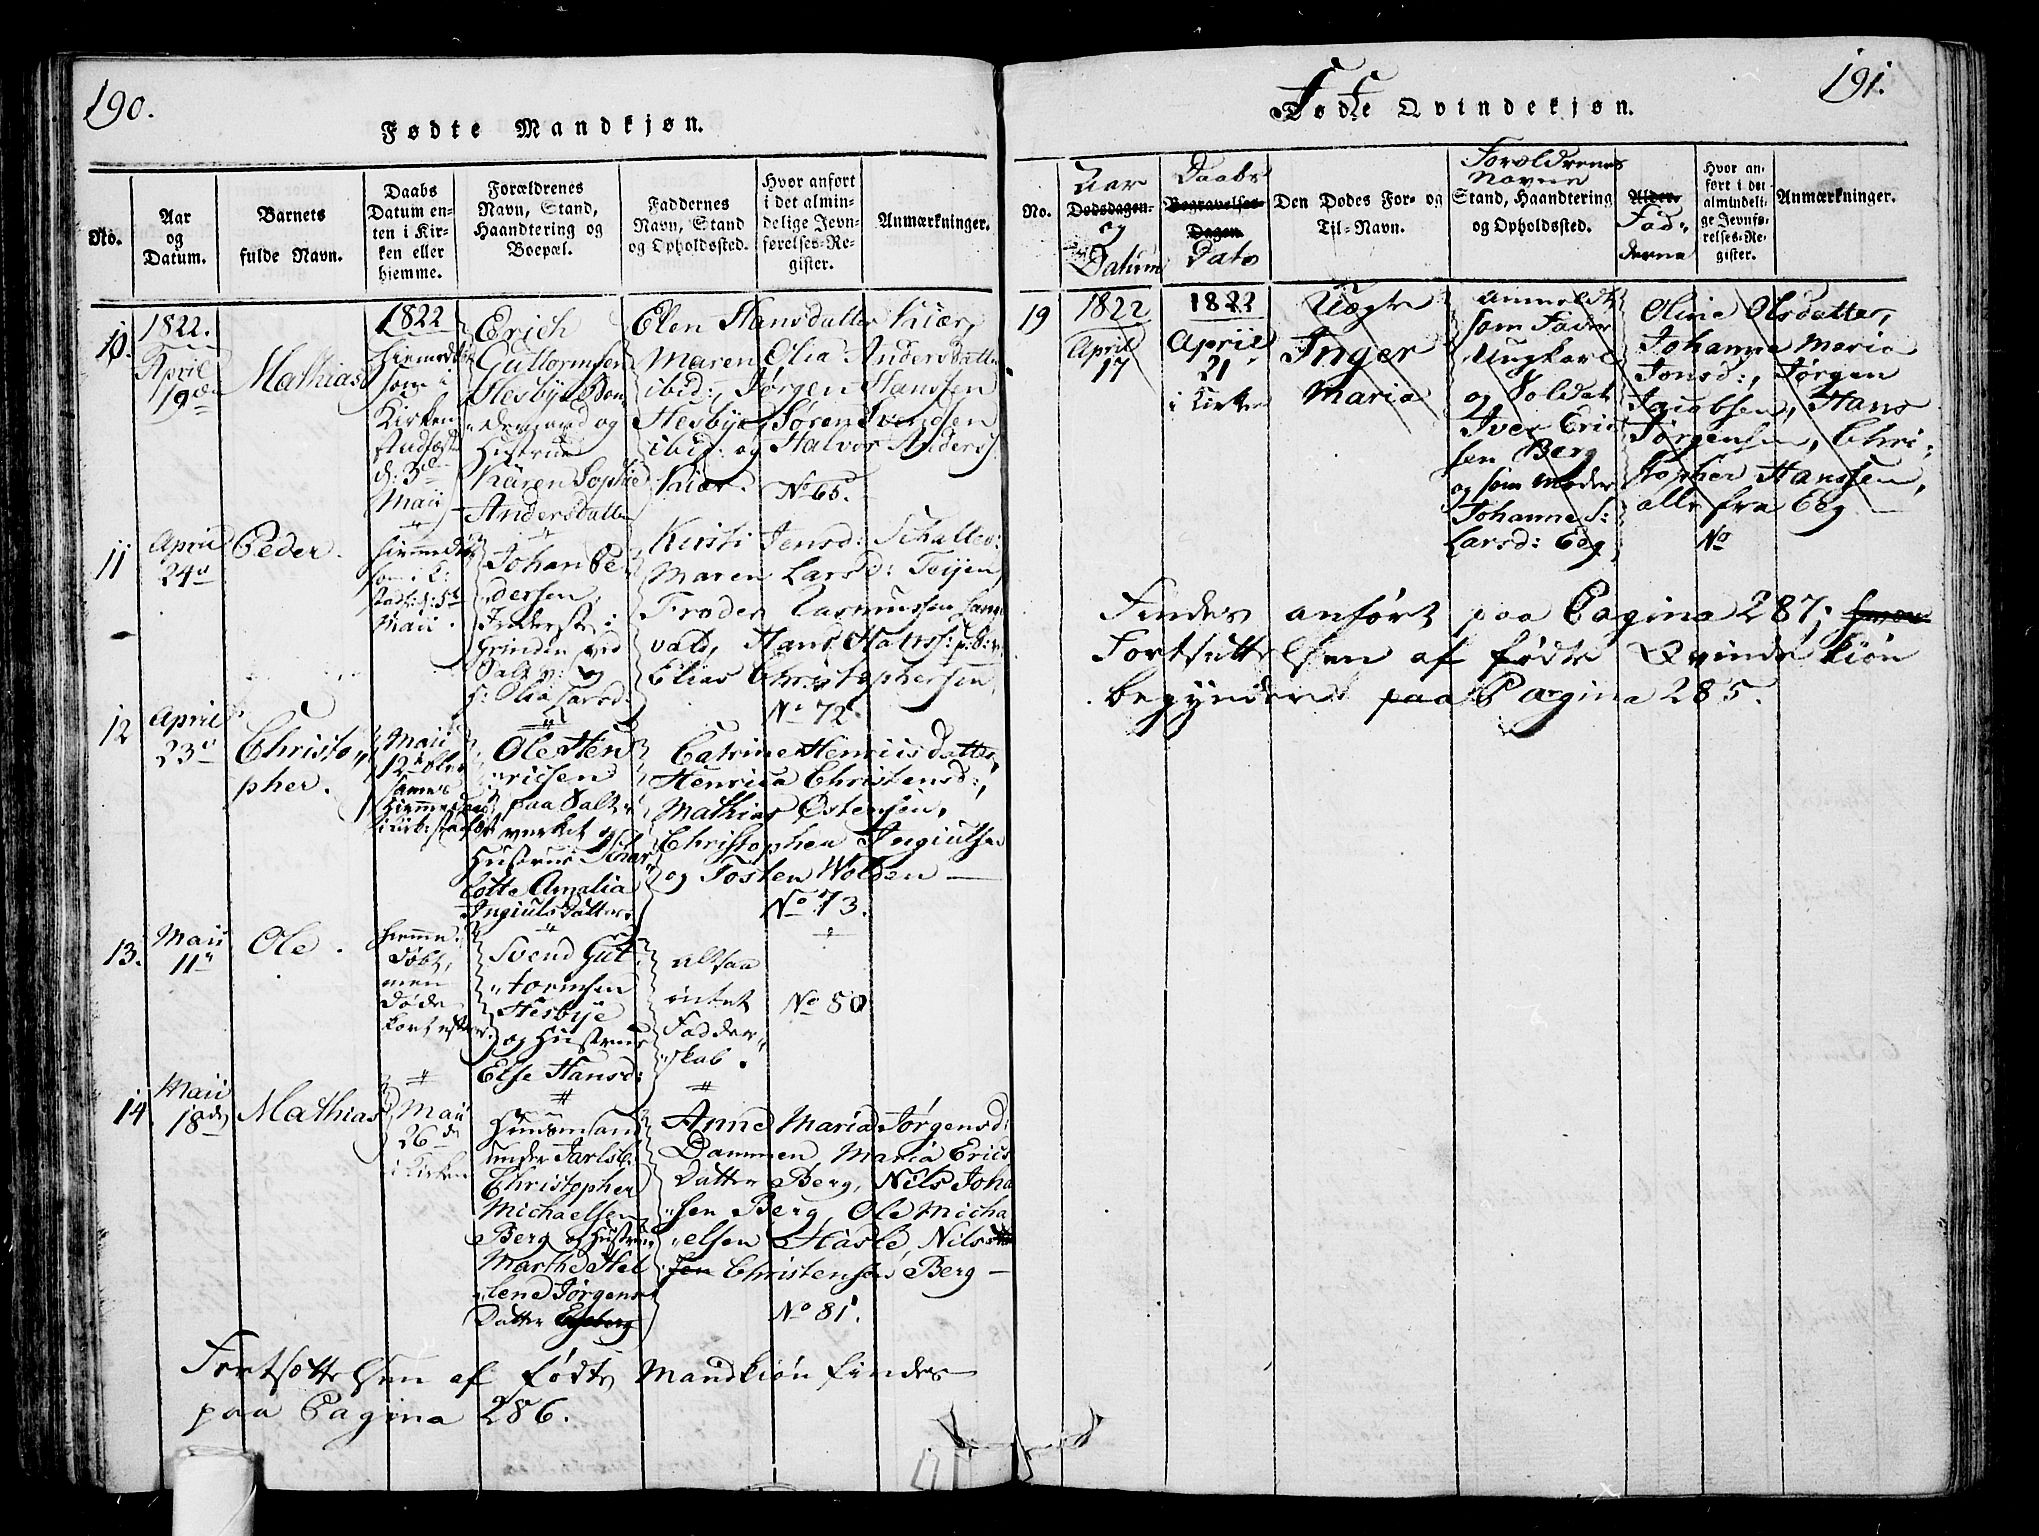 190.
Fødte Mandkjøn.
No.
Aar
og
Datum.
Barnets
fulde Navn.
Daabs
Datum en-
ten i Kir-
ken eller
hjemme.
Forældrenes
Navn, Stand,
Haandtering og
Boepæl.
Faddernes
Navn, Stand
og Opholdssted.
Hvor anført
i det almin-
delige Jevn-
førelses-Re-
gister.
Anmærkninger.
10.
1822.
April
19de
Mathias
1822
som i
Kirken
Stadfæst
d: 5te
Maii
Erich
Guttormsen
Hesbye Bon-
demand og
Hustrue
Karen Sophie
Andersdatter
Elen Hansdatter Kiær,
Maren Olia Andersdatter
ibid:, Jørgen Hanssen
Hesbye, Søren Iversen
ibid: og Halvor Anders:
Kiær. No 65.
11
April
24de
Peder.
som i K:
stadf: d: 5te
Maii.
Johan Pe-
dersen,
Inderste i
Grinden ved
Saltv: og
H: Olia Larsd:
Kirsti Jensd:
Maren Larsd: Teijen,
Froder Rasmussen Lang
vald, Hans
Elias Christophersen
No 72.
12
April
23de
Christo-
pher.
Maii
12te
Ole Hen
ricsen
paa Salt
verket og
Hustrue Schar
lotte Amalia
Ingiulsdatter.
Catrine Henricsdatter,
Henrica Christensd:,
Mathias Østensen,
Christopher Ingiulsen
og Tosten Wolden
No 73.
13.
Maii
11te
Ole.
Hiemme-
døbt,
men
døde
kort efter.
Svend Gut
tormsen
Hesbye
og Hustrue
Else Hansd:
altsaa
intet
Fadder-
skab.
No 80
14
Maii
18de
Mathias
Maii
26de
i Kirken
Huusmand
under Jarlsb:
Christopher
Michaelsen
Berg og Hustrue
Marthe Hel
lene Jørgens
Datter
Anne Maria Jørgensd:
Dammen, Maria Erics
Datter Berg, Nils Joha
sen Berg, Ole Micha
elsen Hasle, Nils
sen Christensen Berg
No 81.
Fortsættelsen af fødte Mandkiøn findes
paa Pagina 286.
191.
Fødte Qvindekjøn.
No.
Aar
Dødsdagen
og
Datum
Daabs
Begravelses-
Dagen.
Dato
Den Dødes For- og
Til-Navn.
Forældrenes
Navne
Stand, Haandtering
og Opholdssted.
Alder.
Fad-
derne
Hvor an-
ført i det
almindeli-
ge Jevnfø-
relses-Re-
gister.
Anmærkninger.
19
1822
April
17
1822
April
21
i Kirken
Uægte
Inger
Maria
Anmeldt
som Fader
Ungkarl
og Soldat
Iver Eric
sen Berg
og som Moder
Johanne S:
Larsd: Eeg,
Oline Olsdatter,
Johanna Maria
Jonsd:, Jørgen
Jacobsen, Hans
Jørgensen, Chri-
stopher Hanssen,
alle fra Eeg
No
Findes anført paa Pagina 287;
Fortsættelsen af fødte Qvindekiøn
begynder paa Pagina 285.